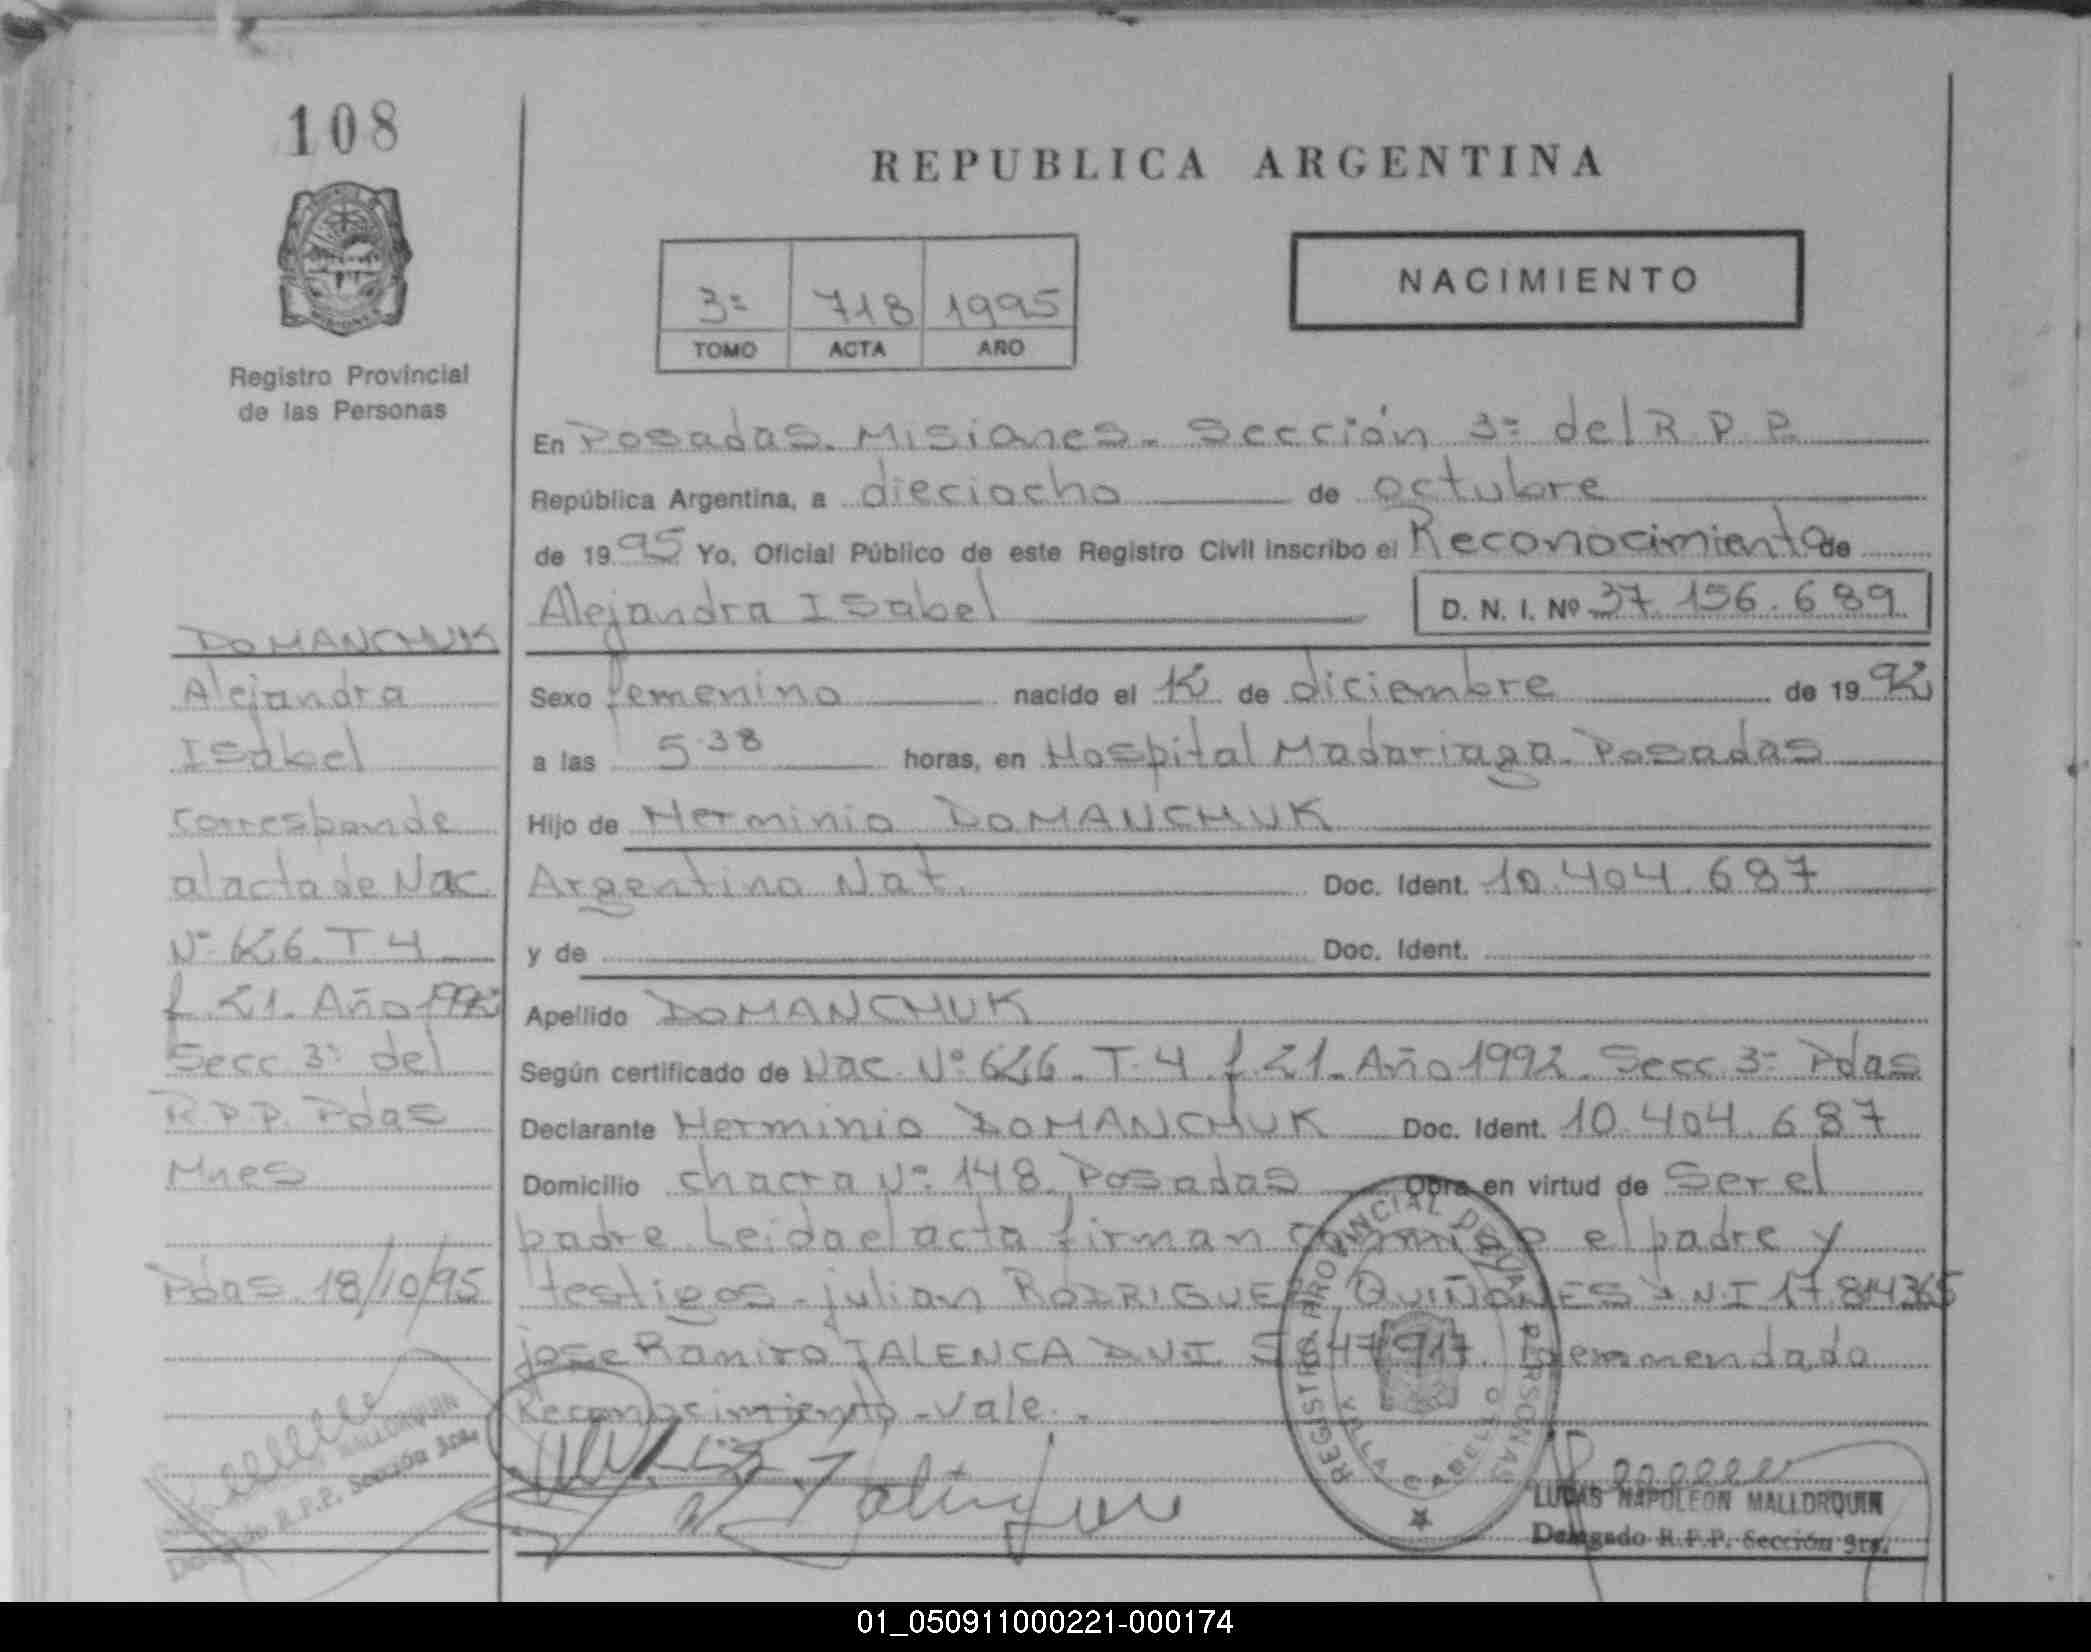 108
Registro Provincial
de las Personas
DOMANCHUK
Alejandra
Isabel
corresponde
al acta de Nac
Nº 626. T 4
f. 21. Año 1992
Secc 3ª del
R.P.P. Pdas
Mnes
Pdas. 18/10/95
MALLORQUIN
Delegado R.P.P. Sección 3ra.
REPUBLICA ARGENTINA
3ª 718 1995
TOMO ACTA AÑO
NACIMIENTO
En Posadas. Misiones. Sección 3ª del R P P.
República Argentina, a dieciocho de octubre
de 1995 Yo, Oficial Público de este Registro Civil inscribo el Reconocimiento de
Alejandra Isabel D. N. I. Nº 37.156.689
Sexo femenino nacido el 12 de diciembre de 1992
a las 5.38 horas, en Hospital Madariaga. Posadas
Hijo de Herminio DOMANCHUK
Argentino Nat. Doc. Ident. 10.404.687
y de Doc. Ident.
Apellido DOMANCHUK
Según certificado de Nac. Nº 626. T. 4 f. 21. Año 1992. Secc 3ª Pdas
Declarante Herminio DOMANCHUK Doc. Ident. 10.404.687
Domicilio chacra Nº 148. Posadas Obra en virtud de Ser el
padre. Leida el acta firman conmigo el padre y
testigos. julian RODRIGUEZ QUIÑONES D N I 17.814365
jose Ramiro D.N.I. 5847917. enmendado
Reconocimiento. Vale.
REGISTRO PROVINCIAL DE LAS PERSONAS
VILLA CABELLO
LUCAS NAPOLEON MALLORQUIN
Delegado R.P.P. Sección 3ra.
01_050911000221-000174